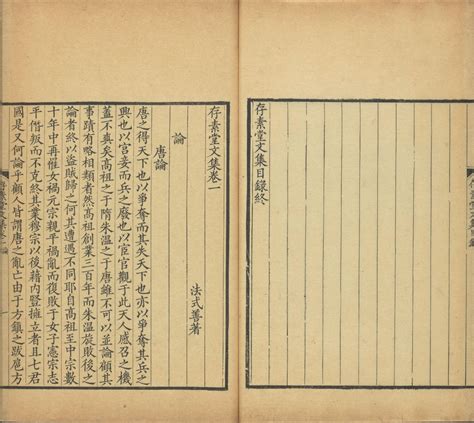 存素堂文集目錄終
存素堂文集卷一
法式善著
論
唐論
唐之得天下也以爭奪而其失天下也亦以爭奪其兵之
興也以宮妾而兵之廢也以宦官觀于此天人感召之機
蓋不爽矣高祖之于隋朱溫之于唐雖不可以並論顧其
事蹟有略相類者然高祖創業三百年而朱溫旋敗後之
論者終以盜賊歸之何其遭遇不同耶自高祖至中宗數
十年中再罹女禍元宗親平禍亂而復敗于女子憲宗志
平僭叛而不克終其業穆宗以後藉內豎擁立者且七君
國是又何論乎顧人皆謂唐之亂亡由于方鎮之跋扈方